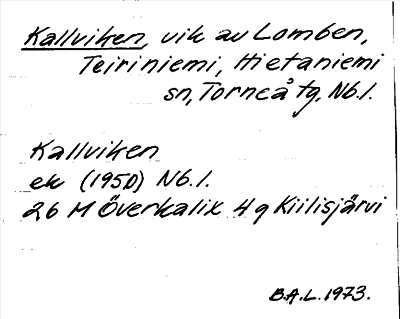 Kallviken, vik av Lomben,
Teiriniemi, Hietaniemi
sn, Torneå tg, Nb.l.
Kallviken
ek (1950) Nb.l.
26 M Överkalix 4 g Kiilisjärvi
B.A.L. 1973.